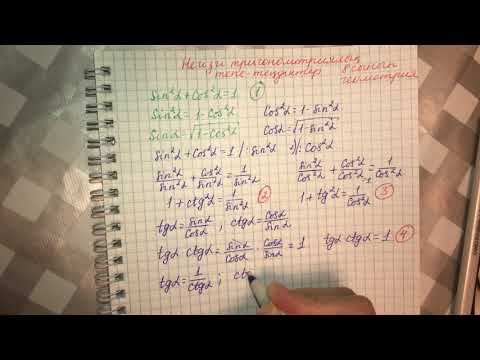 Негізгі тригонометриялық
тепе-теңдіктер
8 сынып
геометрия
Sin²α + Cos²α = 1 ①
Sin²α = 1 - Cos²α
Cos²α = 1 - Sin²α
Sinα = √1 - Cos²α
Cosα = √1 - Sin²α
Sin²α + Cos²α = 1 /: Sin²α 2/: Cos²α
Sin²α/Sin²α + Cos²α/Sin²α = 1/Sin²α
Sin²α/Cos²α + Cos²α/Cos²α = 1/Cos²α
1 + ctg²α = 1/Sin²α ②
1 + tg²α = 1/Cos²α ③
tgα = Sinα/Cosα ; ctgα = Cosα/Sinα
tgα · ctgα = Sinα/Cosα · Cosα/Sinα = 1
tgα · ctgα = 1 ④
tgα = 1/ctgα ; ct